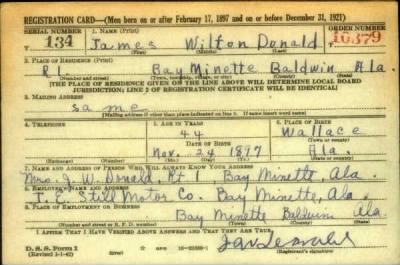 REGISTRATION CARD—(Men born on or after February 17, 1897 and on or before December 31, 1921)
SERIAL NUMBER 1. NAME (Print) ORDER NUMBER
134 James Wilton Donald 10379
2. PLACE OF RESIDENCE (Print)
R1. Bay Minette Baldwin Ala.
(Number and street) (Town, township, village, or city) (County) (State)
[THE PLACE OF RESIDENCE GIVEN ON THE LINE ABOVE WILL DETERMINE LOCAL BOARD
JURISDICTION; LINE 2 OF REGISTRATION CERTIFICATE WILL BE IDENTICAL]
3. MAILING ADDRESS
same
[Mailing address if other than place indicated on line 2. If same insert word same]
4. TELEPHONE 5. AGE IN YEARS 6. PLACE OF BIRTH
44 Wallace
DATE OF BIRTH (Town or county)
Nov. 24 1897 Ala.
(Exchange) (Number) (Mo.) (Day) (Yr.) (State or country)
7. NAME AND ADDRESS OF PERSON WHO WILL ALWAYS KNOW YOUR ADDRESS
Mrs. J. W. Donald, Rt. 1 Bay Minette, Ala.
8. EMPLOYER'S NAME AND ADDRESS
T. E. Still Motor Co. Bay Minette, Ala.
9. PLACE OF EMPLOYMENT OR BUSINESS
Bay Minette Baldwin Ala.
(Number and street or R. F. D. number) (Town) (County) (State)
I AFFIRM THAT I HAVE VERIFIED ABOVE ANSWERS AND THAT THEY ARE TRUE.
D. S. S. Form 1
(Revised 1-1-42) (over)